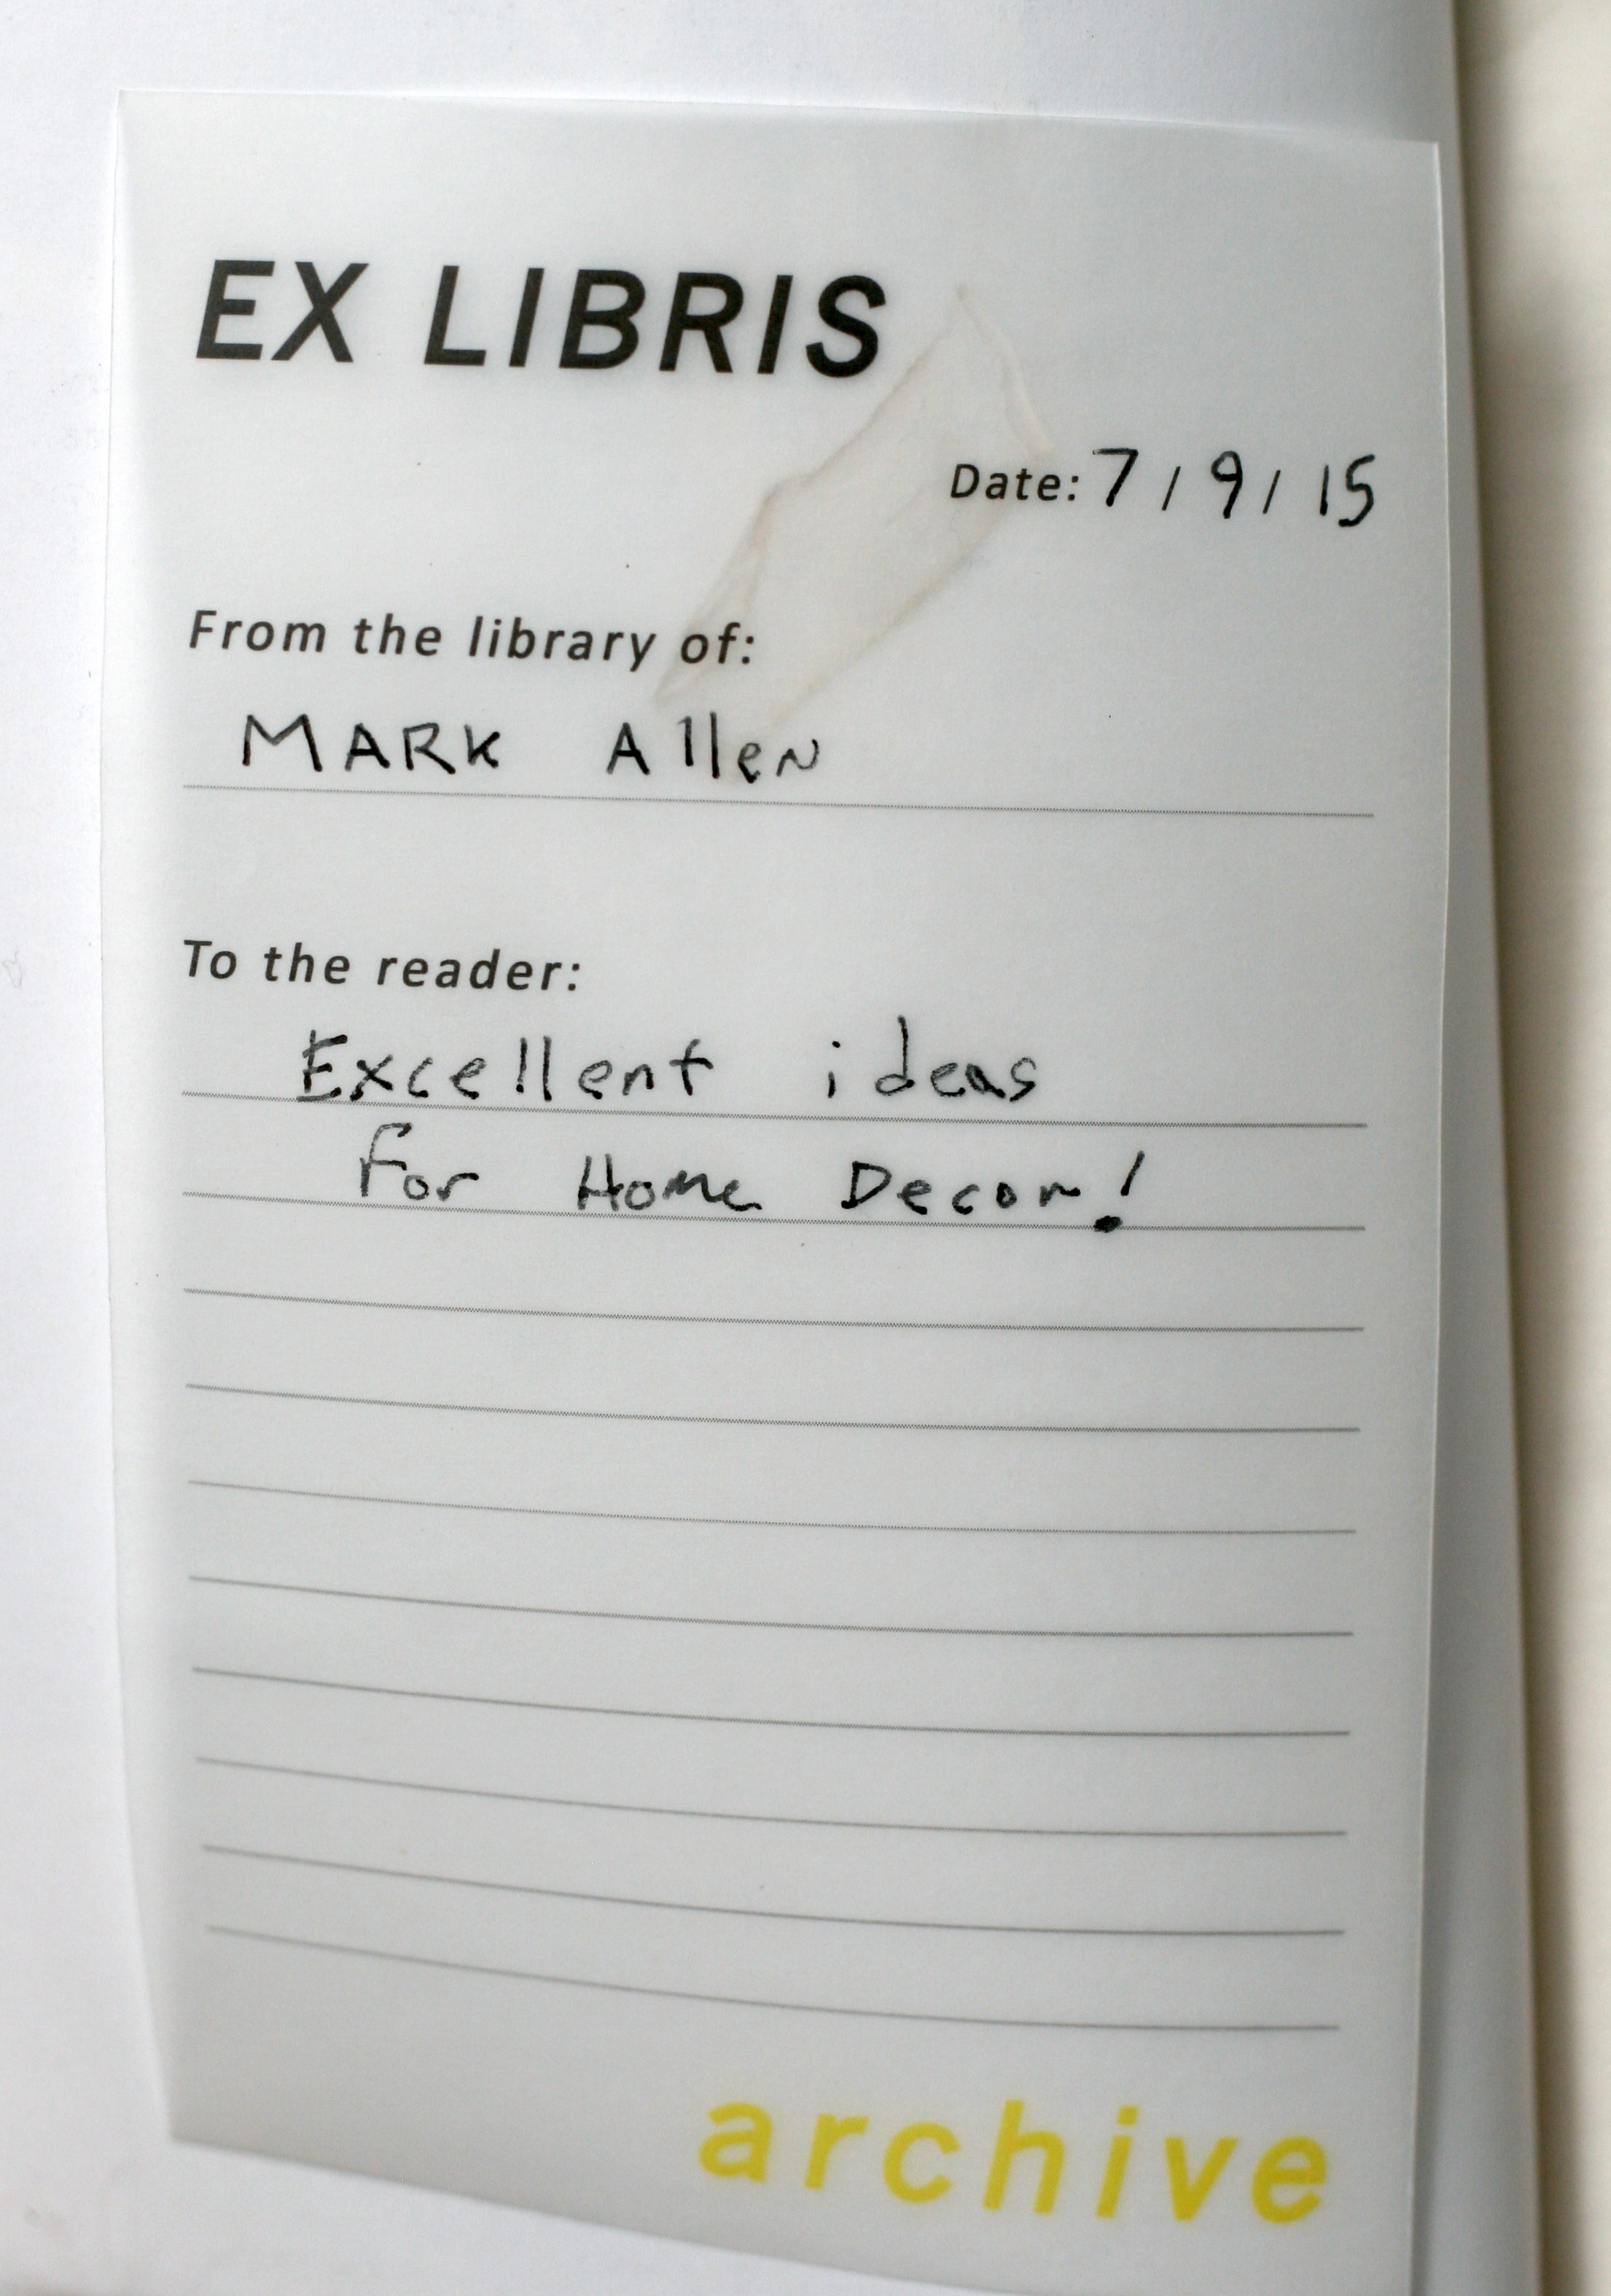 EX LIBRIS
Date: 7/9/15
From the library of:
MARK Allen
To the reader:
Excellent ideas
For Home Decor!
archive